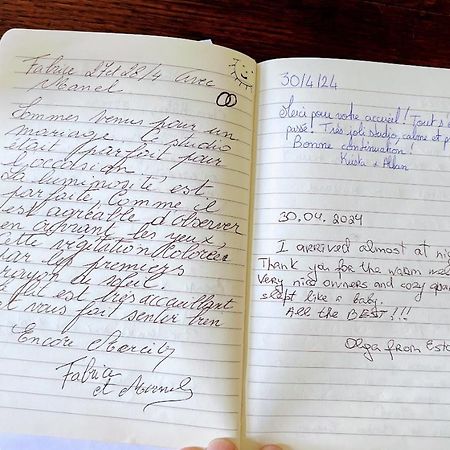 Fabrice 27 et 28/4 avec
Manel
Sommes venus pour un
mariage. Le studio
était parfait pour
l'occasion
La luminosité est
parfaite, comme il
est agréable d'observer
en ouvrant les yeux
cette végétation colorée
par les premiers
rayon de soleil.
Le lit est très accueillant
et vous fait sentir
Encore Merci
Fabrice
et Manel
30/4/24
Merci pour votre accueil! Tout s'
passé! Très joli studio, calme et p
Bonne continuation!
30.04.2024
I arrived almost at nig
Thank you for the warm wel
Very nice owners and cozy apar
slept like a baby.
All the BEST!!!
Olga from Esto